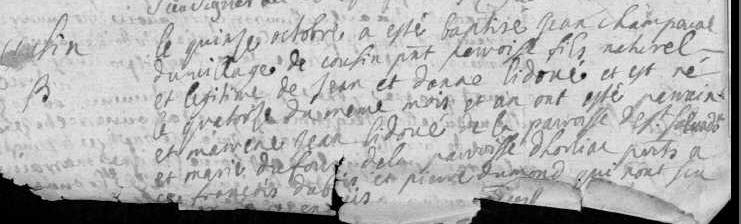 cousin
B
le quinse octobre a esté baptise jean champaval
du village de cousin pnt parroisse fils naturel
et legitime de jean et danne lidoué et est né
le quatorse du meme mois et an ont esté parrain
et marrene jean lidoué de la parroisse de st
et marie du four dela parroisse dhorlian pnts a
ce françois et pierre dumond qui nont sceu